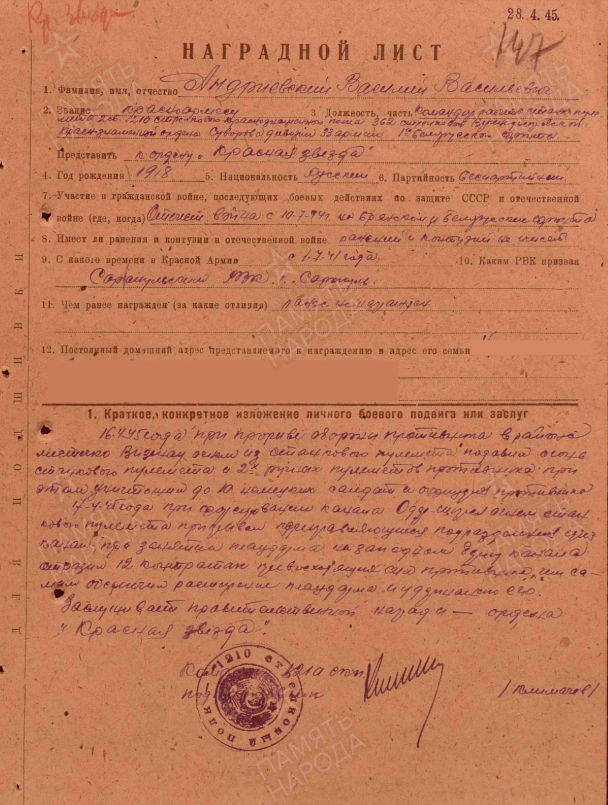 Кр. Звезда
28.4.45.
747
НАГРАДНОЙ ЛИСТ
1. Фамилия, имя, отчество Андриевский Василий Васильевич
2. Звание красноармеец 3. Должность, часть Командир расчета станк. пуле-
мета 2 сб. 1210 стрелкового Краснознаменного полка 362 стрелковой Верхнеднепровской
Краснознаменной ордена Суворова дивизии 33 армии 1го Белорусского фронта
Представить к ордену „Красная звезда"
4. Год рождения 1918 5. Национальность русский 6. Партийность беспартийный
7. Участие в гражданской войне, последующих боевых действиях по защите СССР и отечественной
войне (где, когда) Отечеств. война с 10.7.941 на Брянском и Белорусском фронтах
8. Имеет ли ранения и контузии в отечественной войне ранений и контузий не имеет
9. С какого времени в Красной Армии с 1.7.41 года 10. Каким РВК призван
Сарапульский РВК г. Сарапуль
11. Чем ранее награжден (за какие отличия) ранее не награжден
12. Постоянный домашний адрес представляемого к награждению и адрес его семьи
1. Краткое, конкретное изложение личного боевого подвига или заслуг
16.4.45 года при прорыве обороны противника в районе
местечко огнем из станкового пулемета подавил огонь
станкового пулемета и 2х ручных пулеметов противника при
этом уничтожил до 10 немецких солдат и противника
17.4.45 года при форсировании канала Одер огнем станко-
вого пулемета прикрывал переправляющиеся подразделения через
канал, при занятии плацдарма на западном берегу канала
отразил 12 контратак превосходящих сил противника, тем са-
мым обеспечил расширение плацдарма и удержание его.
Заслуживает правительственной награды — ордена
"Красная звезда".
1210 стрелковый полк
/Климачов/
ДЛЯ ПОДШИВКИ
ПАМЯТЬ НАРОДА